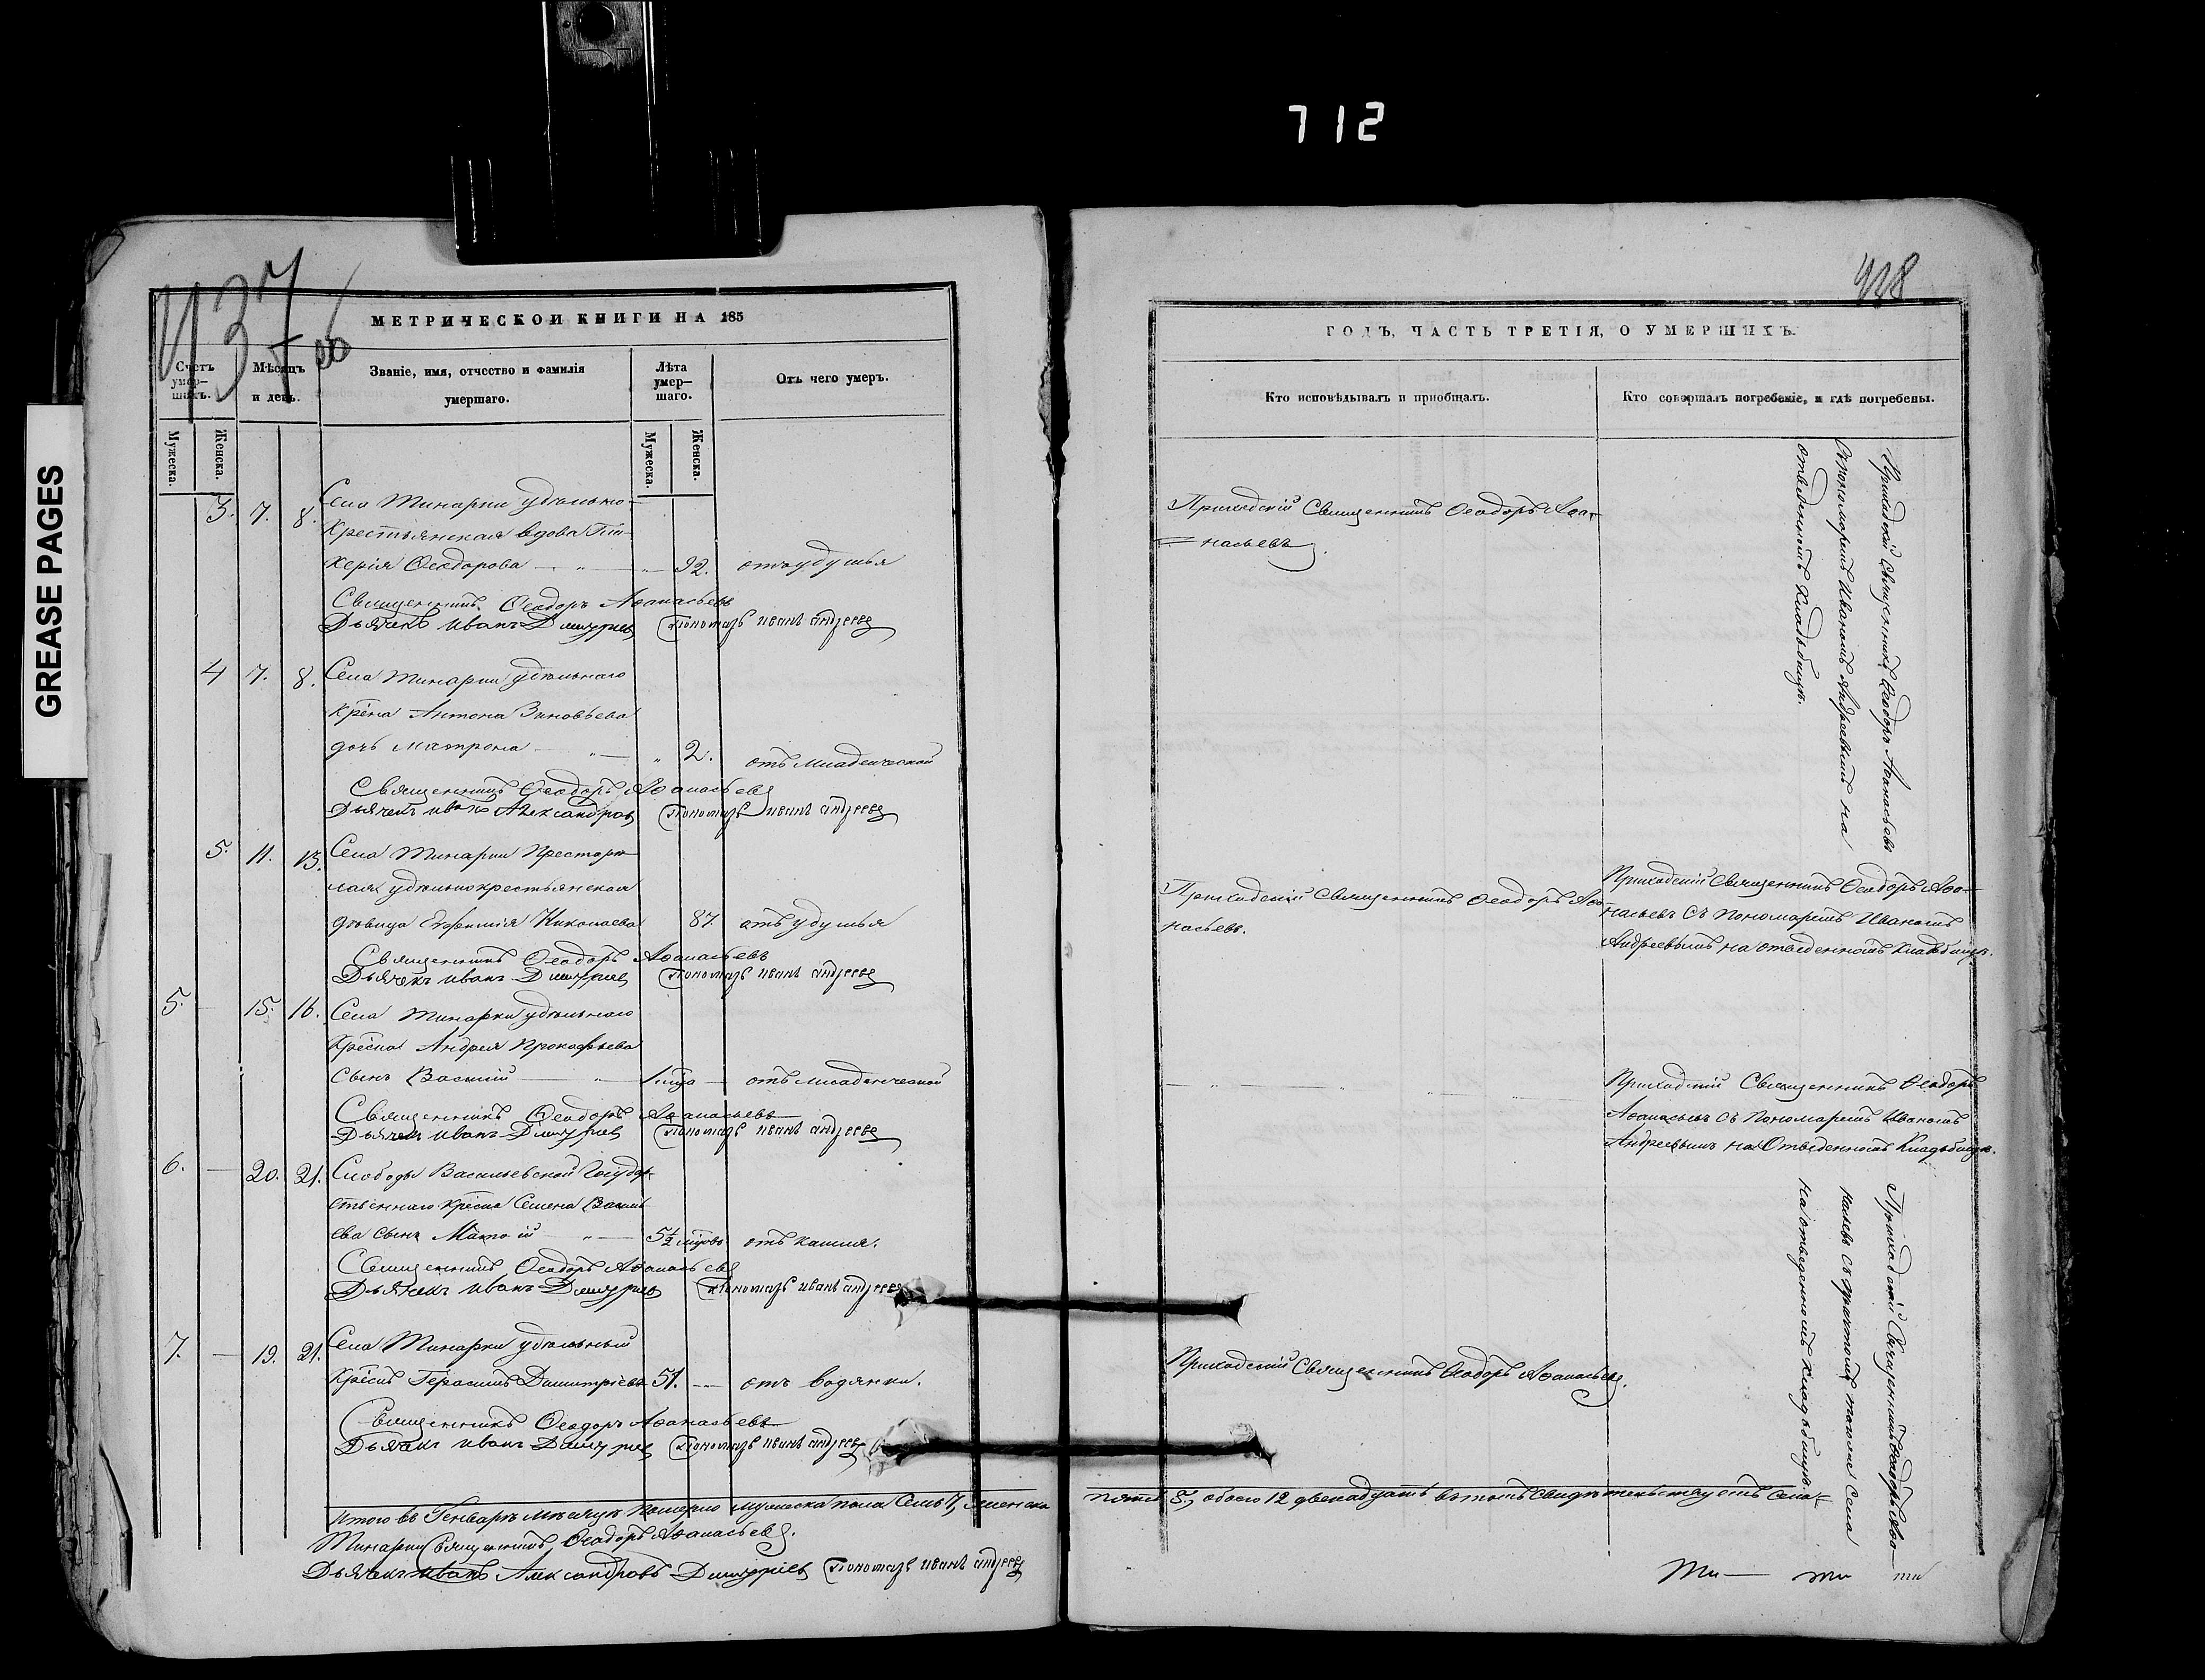 712
GREASE PAGES
437
428
МЕТРИЧЕСКОЙ КНИГИ НА 185
Счетъ умер-шихъ.
Мѣсяцъ и день.
Званіе, имя, отчество и фамилія умершаго.
Лѣта умер-шаго.
Отъ чего умеръ.
Мужеска.
Женска.
Мужеска.
Женска.
3. 7. 8. Села Тинарки удѣльно-
крестьянская вдова Гли-
керія Ѳеодорова — „ — „ 92. отъ удушья
Священникъ Ѳеодоръ Аѳанасьевъ
Дьячекъ Иванъ Димитріев Пономарь Иванъ Андреевъ
4 7. 8. Села Тинарки удѣльнаго
крѣна Антона Зиновьева
дочь Матрона — „ — „ 2. отъ младенческой
Священникъ Ѳеодоръ Аѳанасьевъ
Дьячекъ Иванъ Александров Пономарь Иванъ Андреевъ
5. 11. 13. Села Тинарки Престарѣ-
лая удѣльнокрестьянская
дѣвица Евѳимія Николаева 87. отъ удушья
Священникъ Ѳеодоръ Аѳанасьевъ
Дьячекъ Иванъ Димитріев Пономарь Иванъ Андреевъ
5. — 15. 16. Села Тинарки удѣльнаго
Крѣсна Андрея Прокофьева
сынъ Василій — „ — 1 отъ младенческой
Священникъ Ѳеодоръ Аѳанасьевъ
Дьячекъ Иванъ Димитріев Пономарь Иванъ Андреевъ
6. — 20. 21. Слободы Васильевской Государ-
ственнаго крѣсна Семена Василь-
ева сынъ „ — 5½ отъ кашля.
Священникъ Ѳеодоръ Аѳанасьевъ
Дьячекъ Иванъ Димитріев Пономарь Иванъ Андреевъ
7. — 19. 21. Села Тинарки удѣльный
крѣсн. Герасимъ Димитріевъ 51. — отъ водянки.
Священникъ Ѳеодоръ Аѳанасьевъ
Дьячекъ Иванъ Димитріев Пономарь Иванъ Андреевъ
Итого въ Генварѣ мѣсяцѣ померло мужеска пола семь 7, женска
пять 5, обоего 12 двенадцать. въ томъ свидѣтельствуетъ села
Тинарки Священникъ Ѳеодоръ Аѳанасьевъ.
Дьячекъ Иванъ Александровъ Димитріев Пономарь Иванъ Андреевъ
ГОДЪ, ЧАСТЬ ТРЕТІЯ, О УМЕРШИХЪ.
Кто исповѣдывалъ и пріобщалъ.
Кто совершалъ погребеніе, и гдѣ погребены.
Приходскій Священникъ Ѳеодоръ Аѳа-
насьевъ.
Приходскій Священникъ Ѳеодоръ Аѳанасьевъ
съ пономаремъ Иваномъ Андреевымъ на
отведенномъ кладбищѣ.
Приходскій Священникъ Ѳеодоръ Аѳа-
насьевъ.
Приходскій Священникъ Ѳеодоръ Аѳа-
насьевъ съ пономаремъ Иваномъ
Андреевымъ на отведенномъ кладбищѣ.
Приходскій Священникъ Ѳеодоръ
Аѳанасьевъ съ пономаремъ Иваномъ
Андреевымъ на отведенномъ кладбищѣ.
Приходскій Священникъ Ѳеодоръ Аѳа-
насьевъ съ причтомъ тогоже села
на отведенномъ кладбищѣ.
Приходскій Священникъ Ѳеодоръ Аѳанасьевъ.